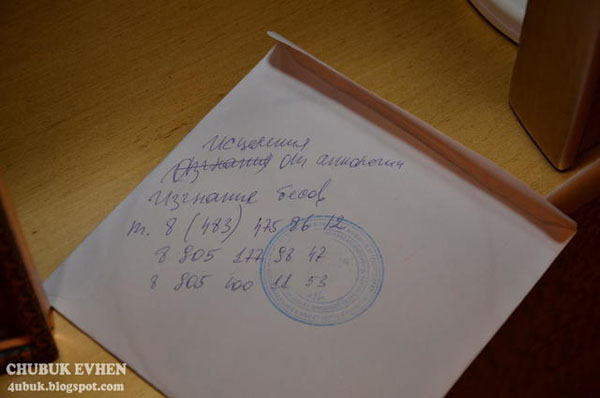 исцеления
изгнания от онкологии
Изгнание бесов
т. 8 (483) 475 86 12
8 905 177 98 47
8 905 100 11 53
CHUBUK EVHEN
4ubuk.blogspot.com